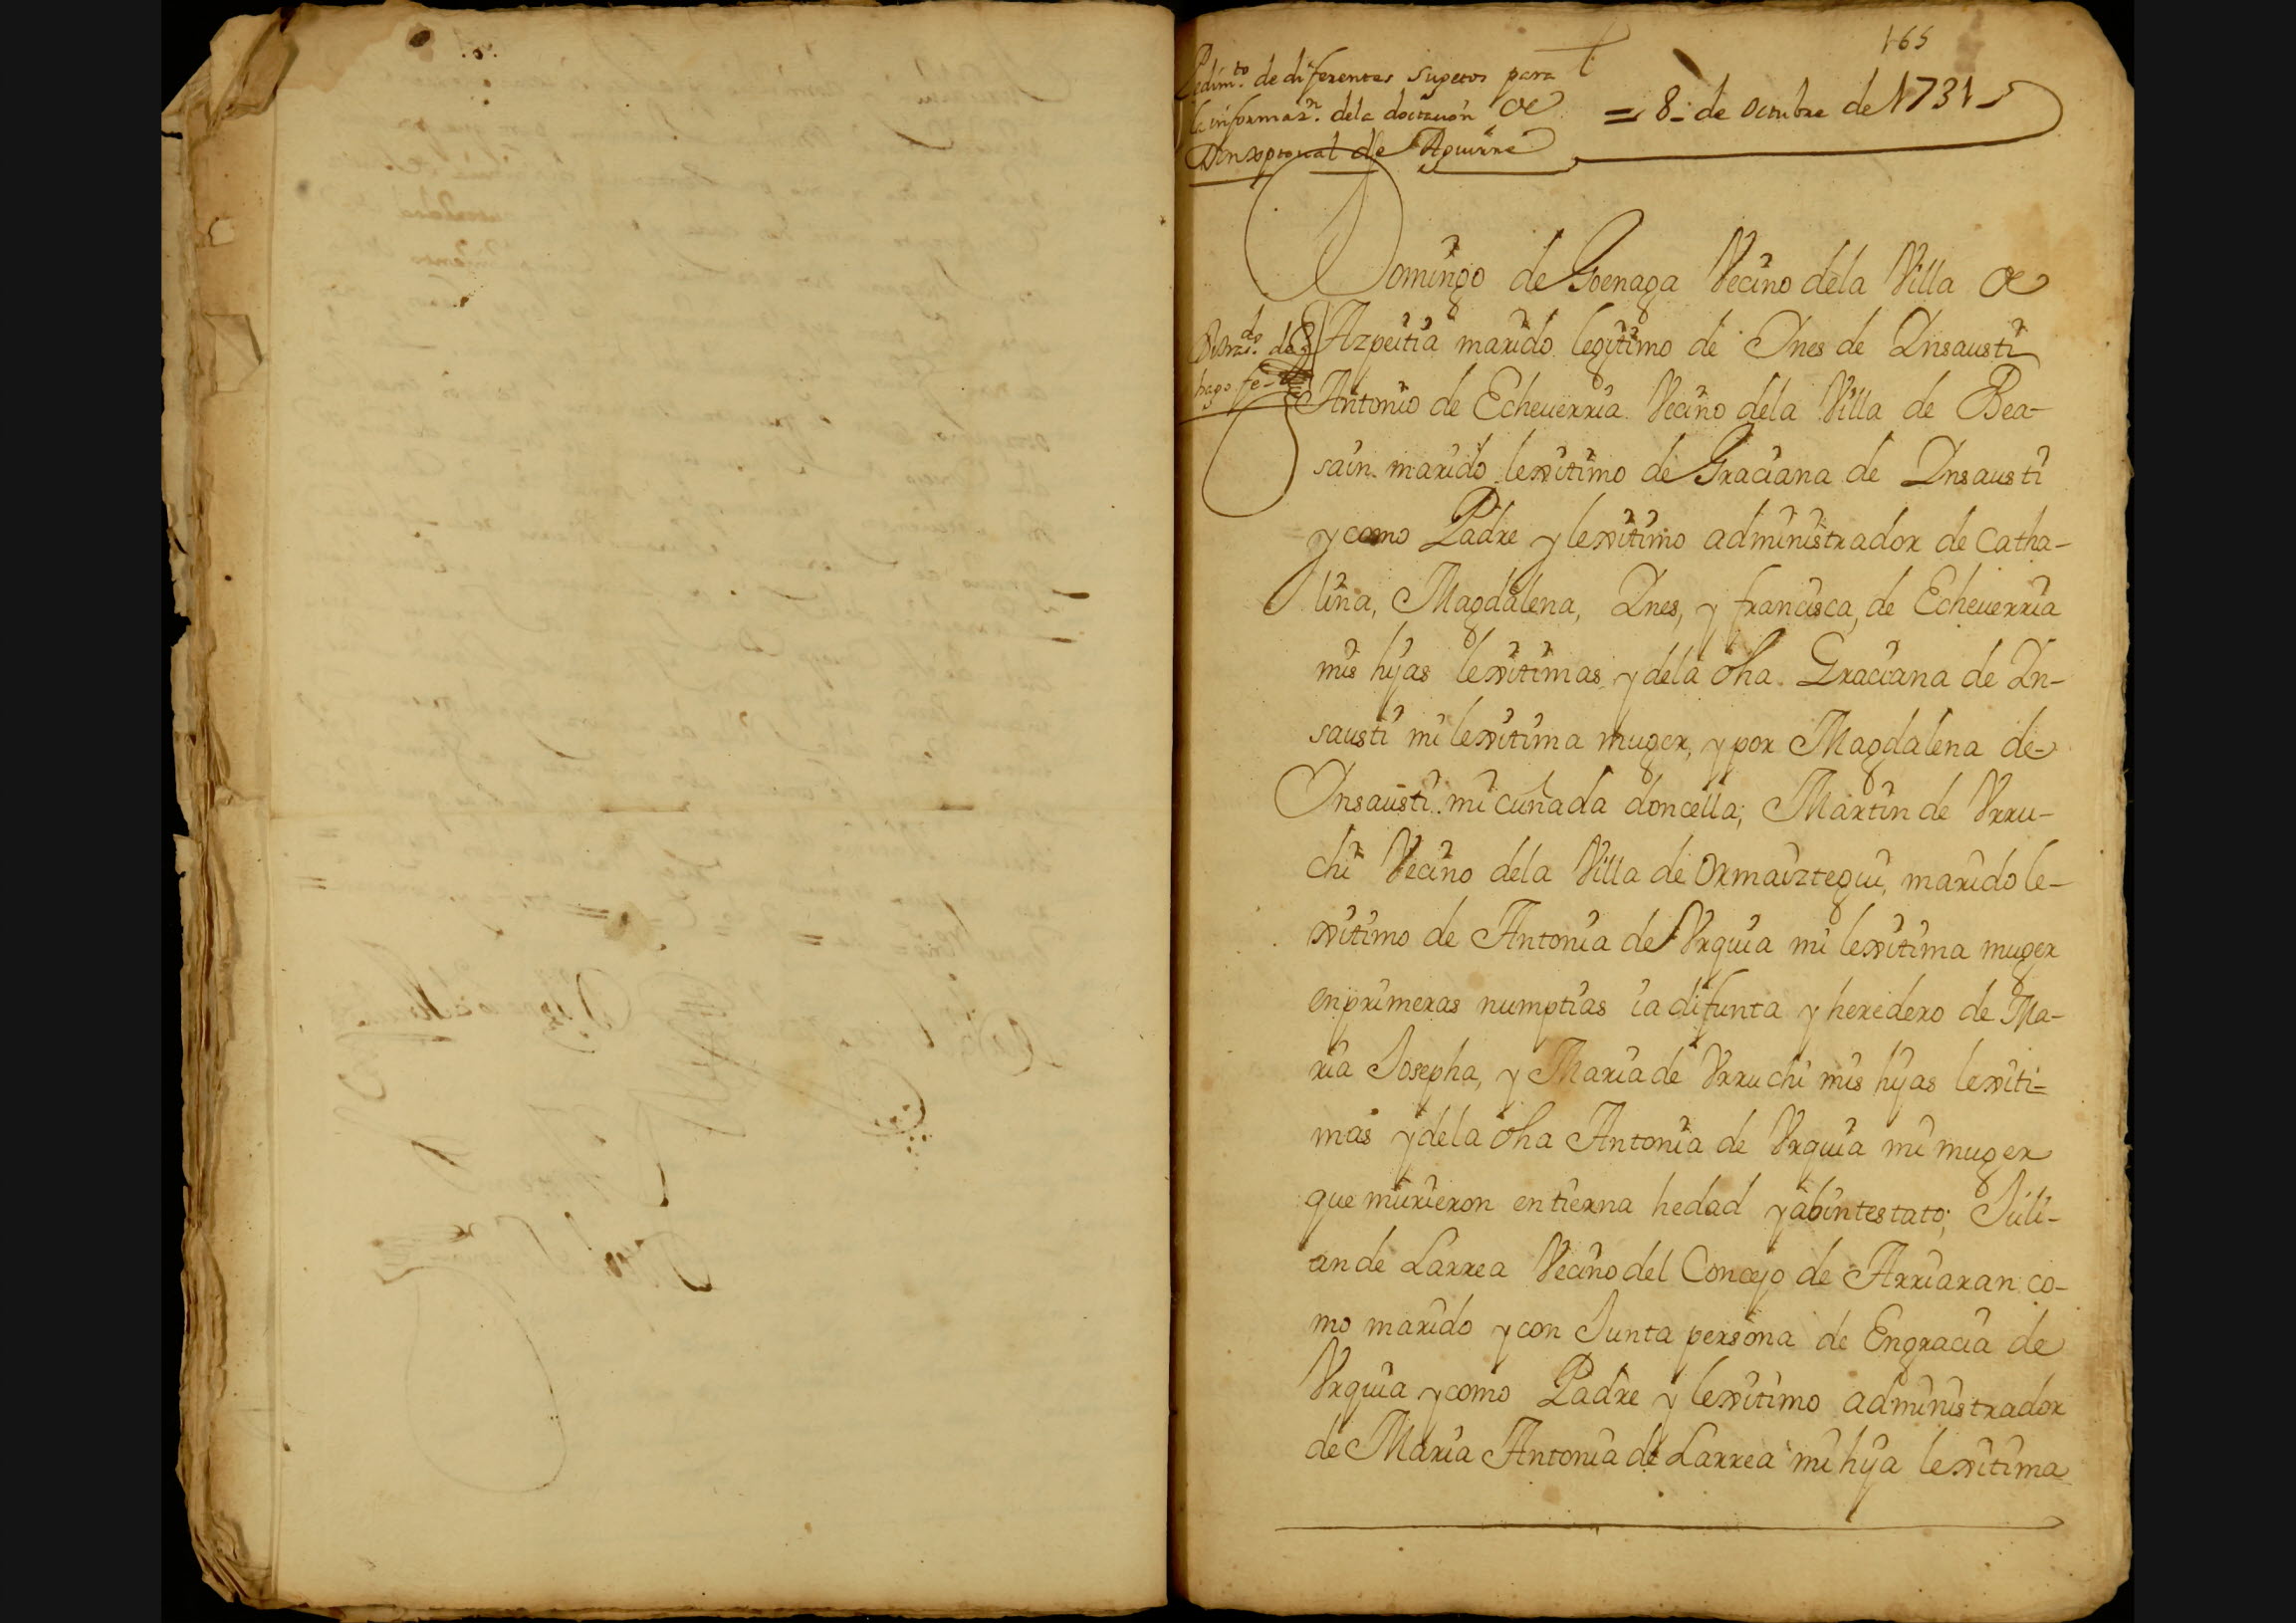 165
Pedim.to de diferentes sugetos para
la informaz.n dela dotazion de
Dn Xptoual de Aguirre
= 8- de Octubre de 1731
Domingo de Goenaga Vecino dela Villa de
Azpeitia marido legitimo de Ines de Insausti
hago fe
Antonio de Echeuerria Vecino dela Villa de Bea-
sain marido lexitimo de Graciana de Insausti
y como Padre y lexitimo administrador de Catha-
lina, Magdalena, Ines, y francisca, de Echeuerria
mis hijas lexitimas y dela dha Graciana de In-
sausti mi lexitima muger, y por Magdalena de
Insausti mi cuñada doncella; Martin de Vrru-
chi Vecino dela Villa de Ormaiztegui, marido le-
xitimo de Antonia de Vrquia mi lexitima muger
en primeras numptias ia difunta y heredero de Ma-
ria Josepha, y Maria de Vrruchi mis hijas lexiti-
mas y dela dha Antonia de Vrquia mi muger
que murieron en tierna hedad y abintestato; Juli-
an de Larrea Vecino del Concejo de Arriaran co-
mo marido y con Junta persona de Engracia de
Vrquia y como Padre y lexitimo administrador
de Maria Antonia de Larrea mi hija lexitima